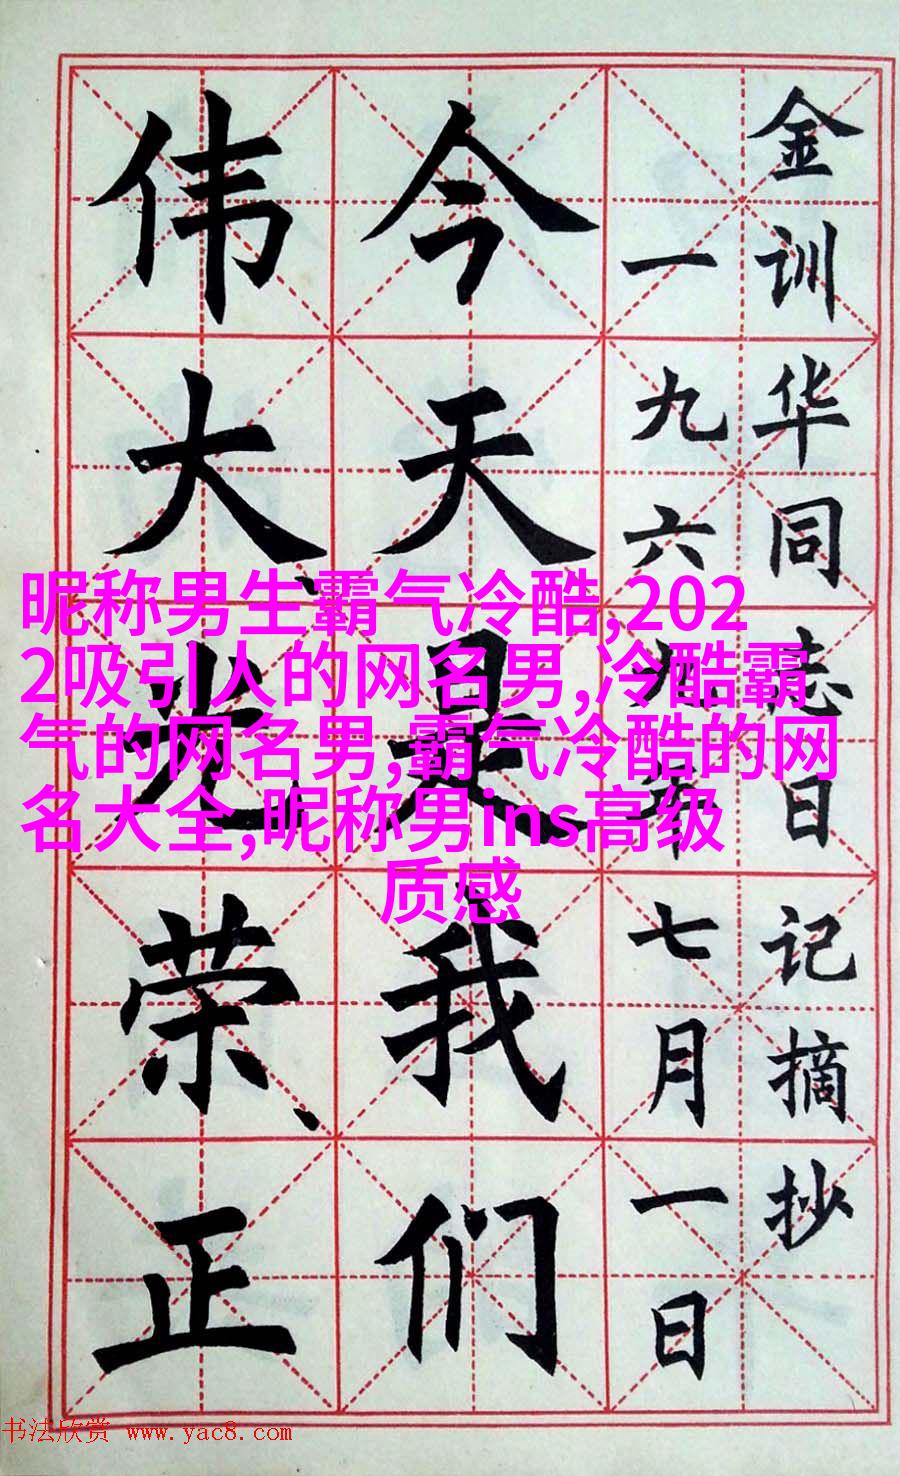 金训华同志日记摘抄
一九六九年七月一日
今天是我们
伟大、光荣、正
昵称男生霸气冷酷,202
2吸引人的网名男,冷酷霸
气的网名男,霸气冷酷的网
名大全,昵称男ins高级
质感
书法欣赏 www.yac8.com